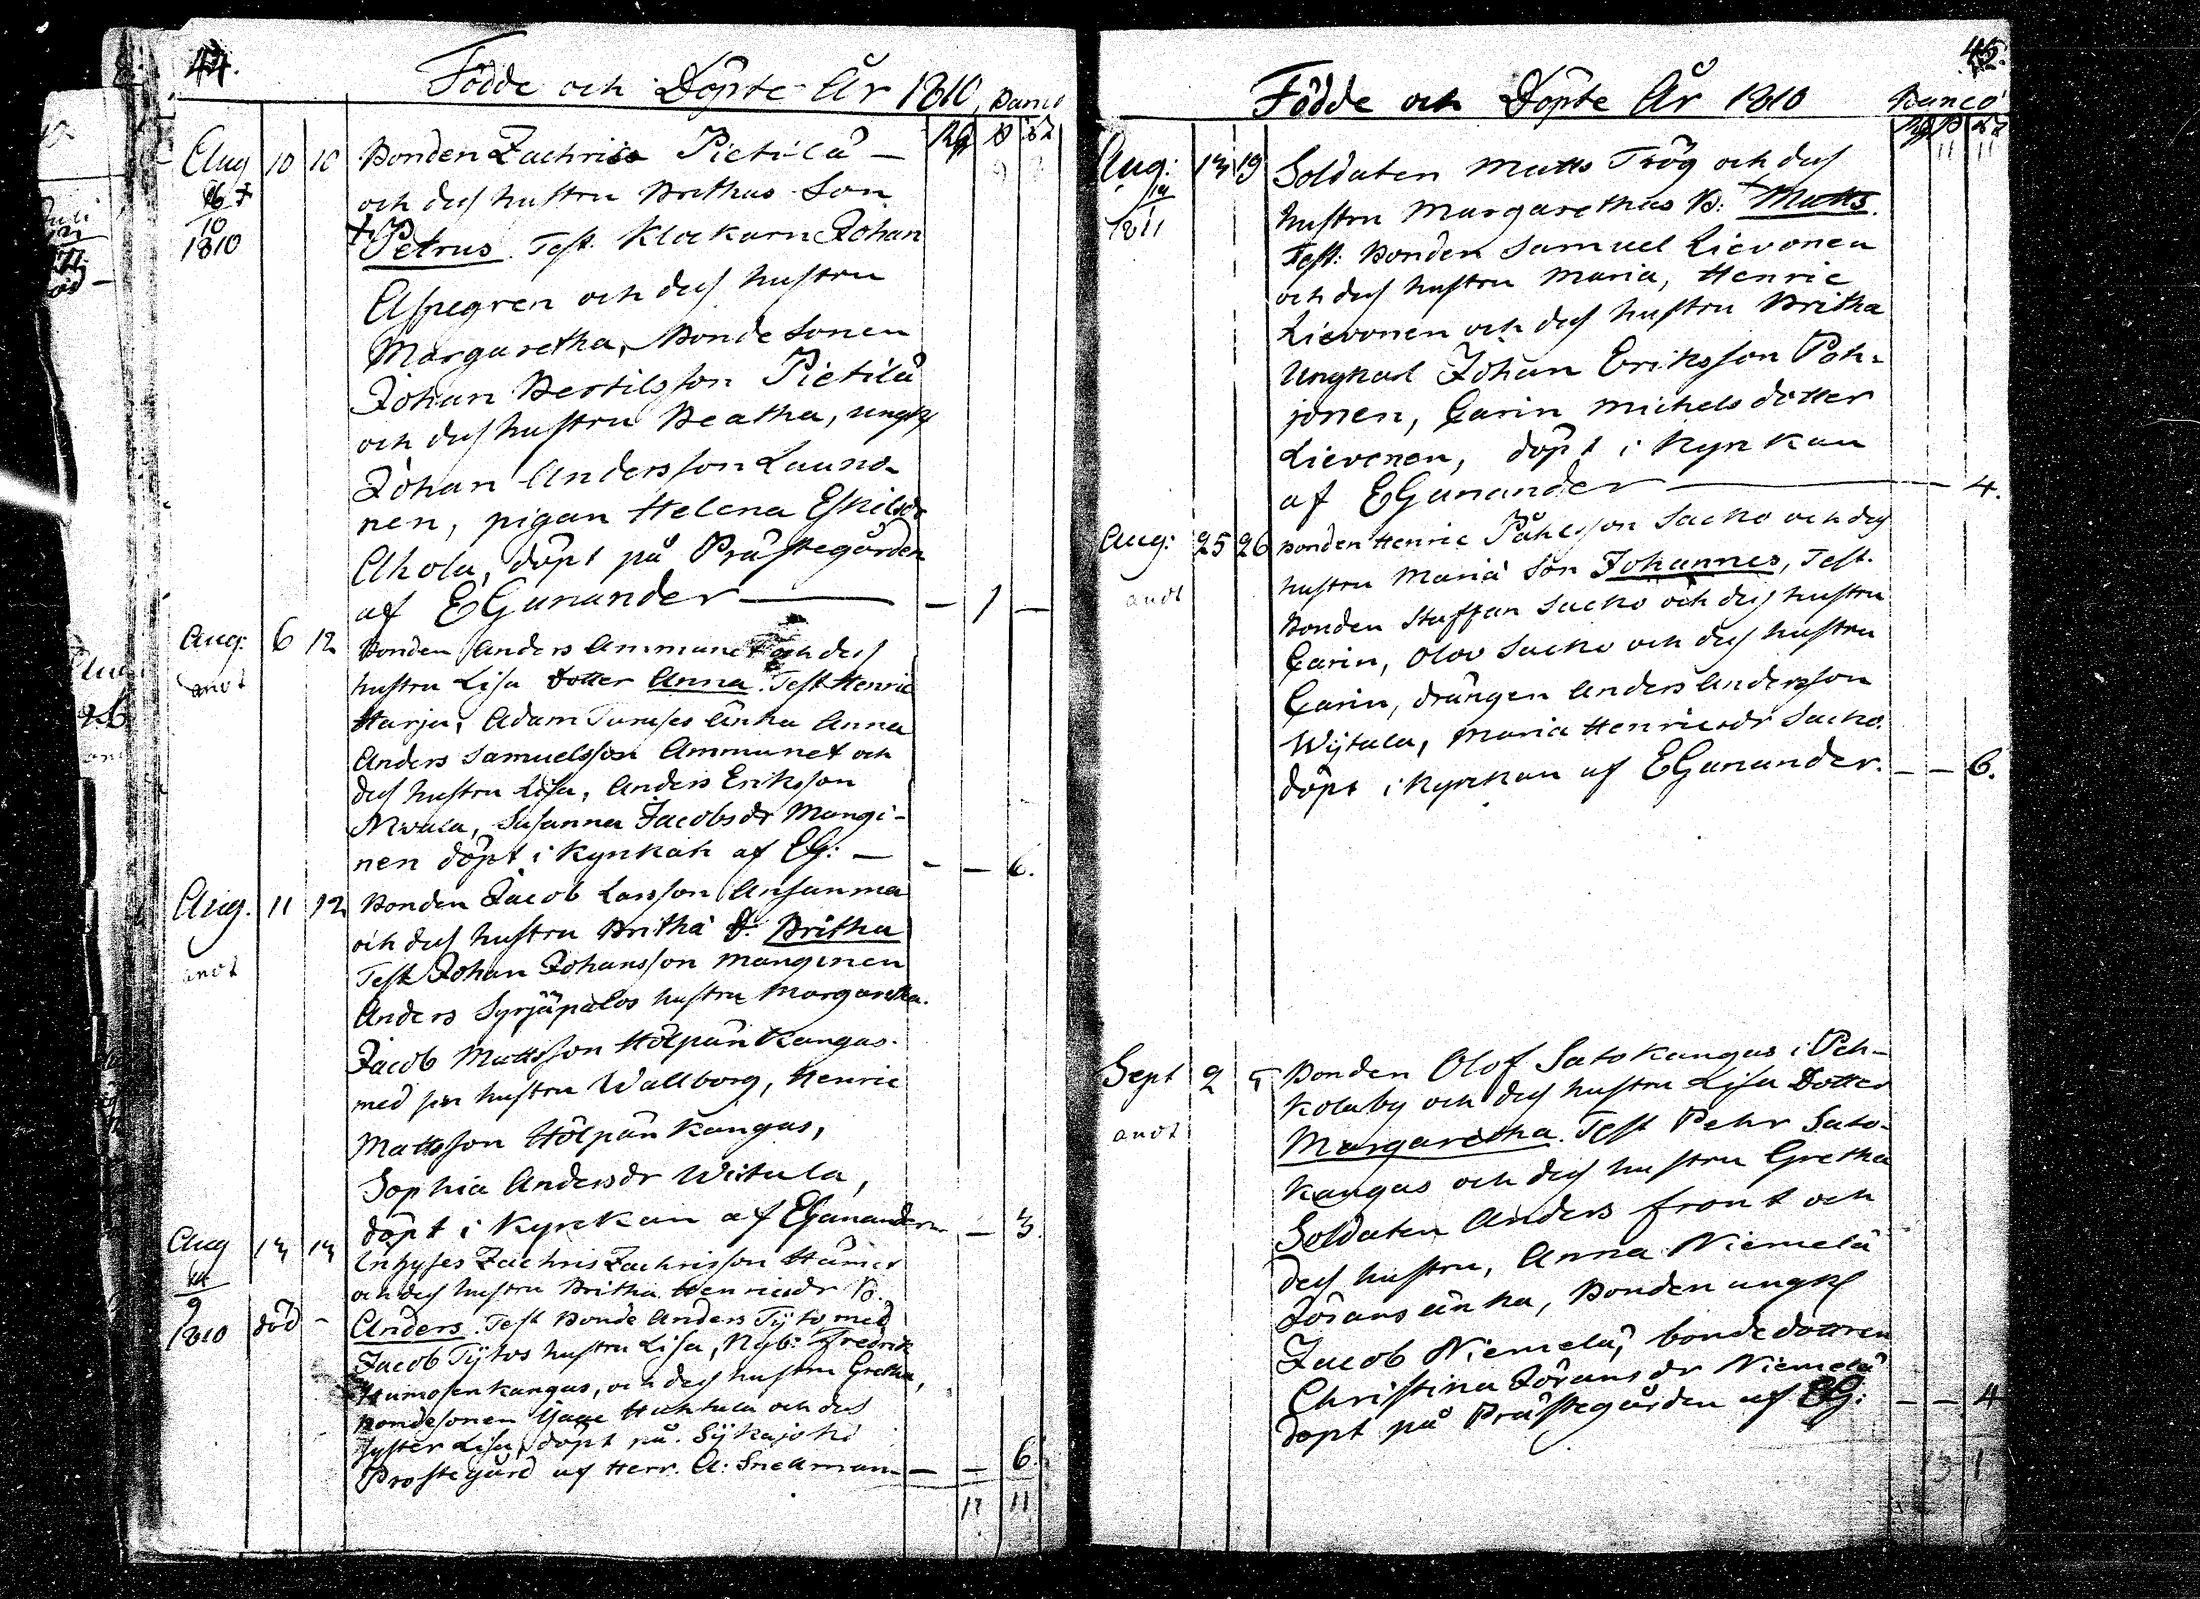 44.
Födde och Döpte År 1810, Banco
Aug 10 10 Bonden Zachris Pietilä —
och dess hustru Brithas Son
16
10
1810
Petrus. Test. Klockarn Johan
Aspegren och dess hustru
Margaretha, Bonde Sonen
Johan Bertilsson Pietilä
och dess hustru Beatha, ungk
Johan Andersson Launo-
nen, pigan Helena Eskilsdr
Ahola, döpt på Prästegården
af EGanander — — 1 —
Aug: 6 12 Bonden Anders Ammunet och dess
anot
hustru Lisa Dotter Anna. Test Henric
Harju, Adam Enka Anna
Anders Samuelsson Ammunet och
dess hustru Lisa, Anders Eriksson
Susanna Jacobsdr Mangi-
nen döpt i Kyrkan af EG: — — — 6.
Aug. 11 12 Bonden Jacob Larsson Ansanma
och dess hustru Britha D. Britha
anot
Test Johan Johansson Manginen
Anders Syrjäpalos hustru Margaretha.
Jacob Mattsson Hölpänkangas
med sin hustru Wallborg, Henric
Mattsson Hölpänkangas,
Sophia Andersdr Wiitala,
döpt i Kyrckan af EGanander — 3.
Aug 13 13 Inhyses Zachris Zachrisson
och dess hustru Britha Henricsdr B.
9
1810 död -
Anders. Test Bonde Anders Tyto med
Jacob Tytos hustru Lisa, Nyb: Fredrik
Humosenkangas, och dess hustru Gretha,
Bondesonen Huhtala och dess
syster Lisa, döpt på Sykajoki
Prostegård af Herr. A: Snelman — — 6.
11
45.
Födde och Döpte År 1810 Banco
Aug: 13 19 Soldaten Matts Trög och dess
hustru Margarethas B: Matts.
1811
Test: Bonden Samuel Lievonen
och dess hustru Maria, Henric
Lievonen och dess hustru Britha
Ungkarl Johan Eriksson Poh-
jonen, Carin Michelsdotter
Lievonen, döpt i Kyrkan
af EGanander — 4.
Aug: 25 26 Bonden Henric Påhlsson Sacko och dess
anot
hustru Maria Son Johannes, Test.
Bonden Staffan Sacko och dess hustru
Carin, Olov Sacko och dess hustru
Carin, drängen Anders Andersson
Wijtala, Maria Henricsdr Sacko.
döpt i Kyrkan af EGanander. — — 6.
Sept 2 5 Bonden Olof Satokangas i Peh-
kolaby och dess hustru Lisa Dotter
anot
Margaretha. Test Pehr Sato-
kangas och dess hustru Gretha
Soldaten Anders Front och
dess hustru, Anna Niemelä
Jörans änka, Bonden ungk
Jacob Niemelä, bondedottren
Christina Jöransdr Niemelä
döpt på Prästegården af EG: — — 4